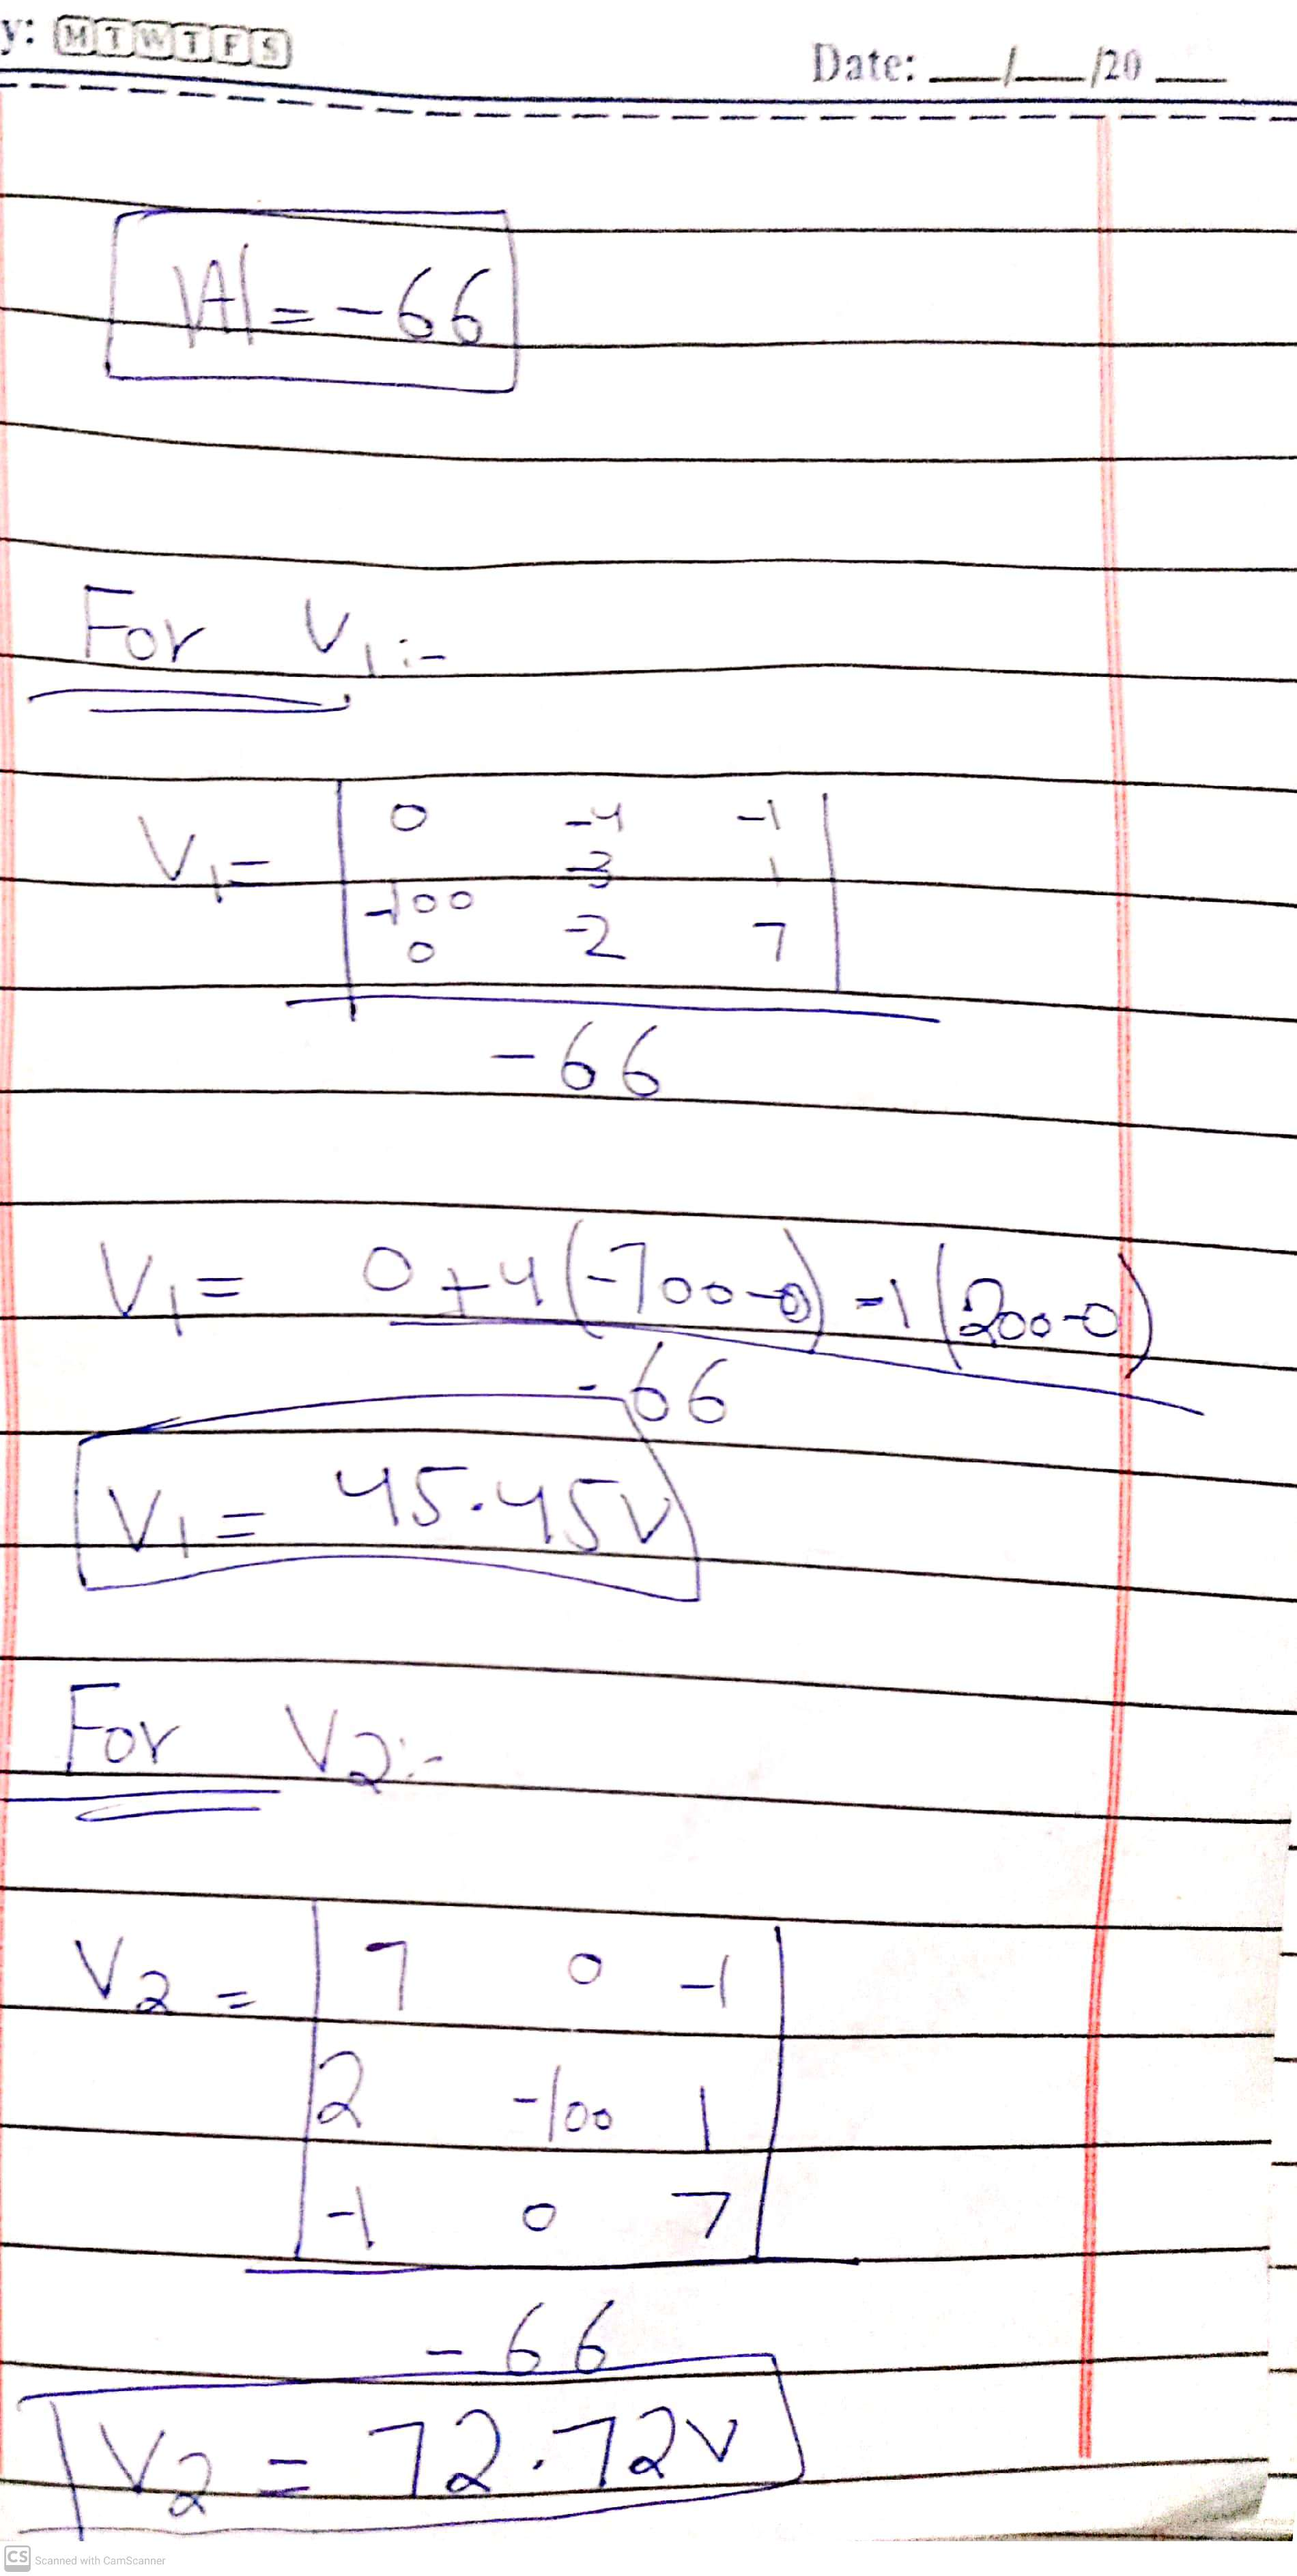 y: M T W T F S
Date: __/__/20__
|A| = -66
For V₁:-
V₁= | 0 -4 -1 |
| -100 -3 1 |
| 0 -2 7 |
-66
V₁= 0+4(-700-0) -1(200-0)
-66
V₁= 45.45V
For V2:-
V2 = | 7 0 -1 |
| 2 -100 1 |
| -1 0 7 |
-66
V2 = 72.72V
CS Scanned with CamScanner